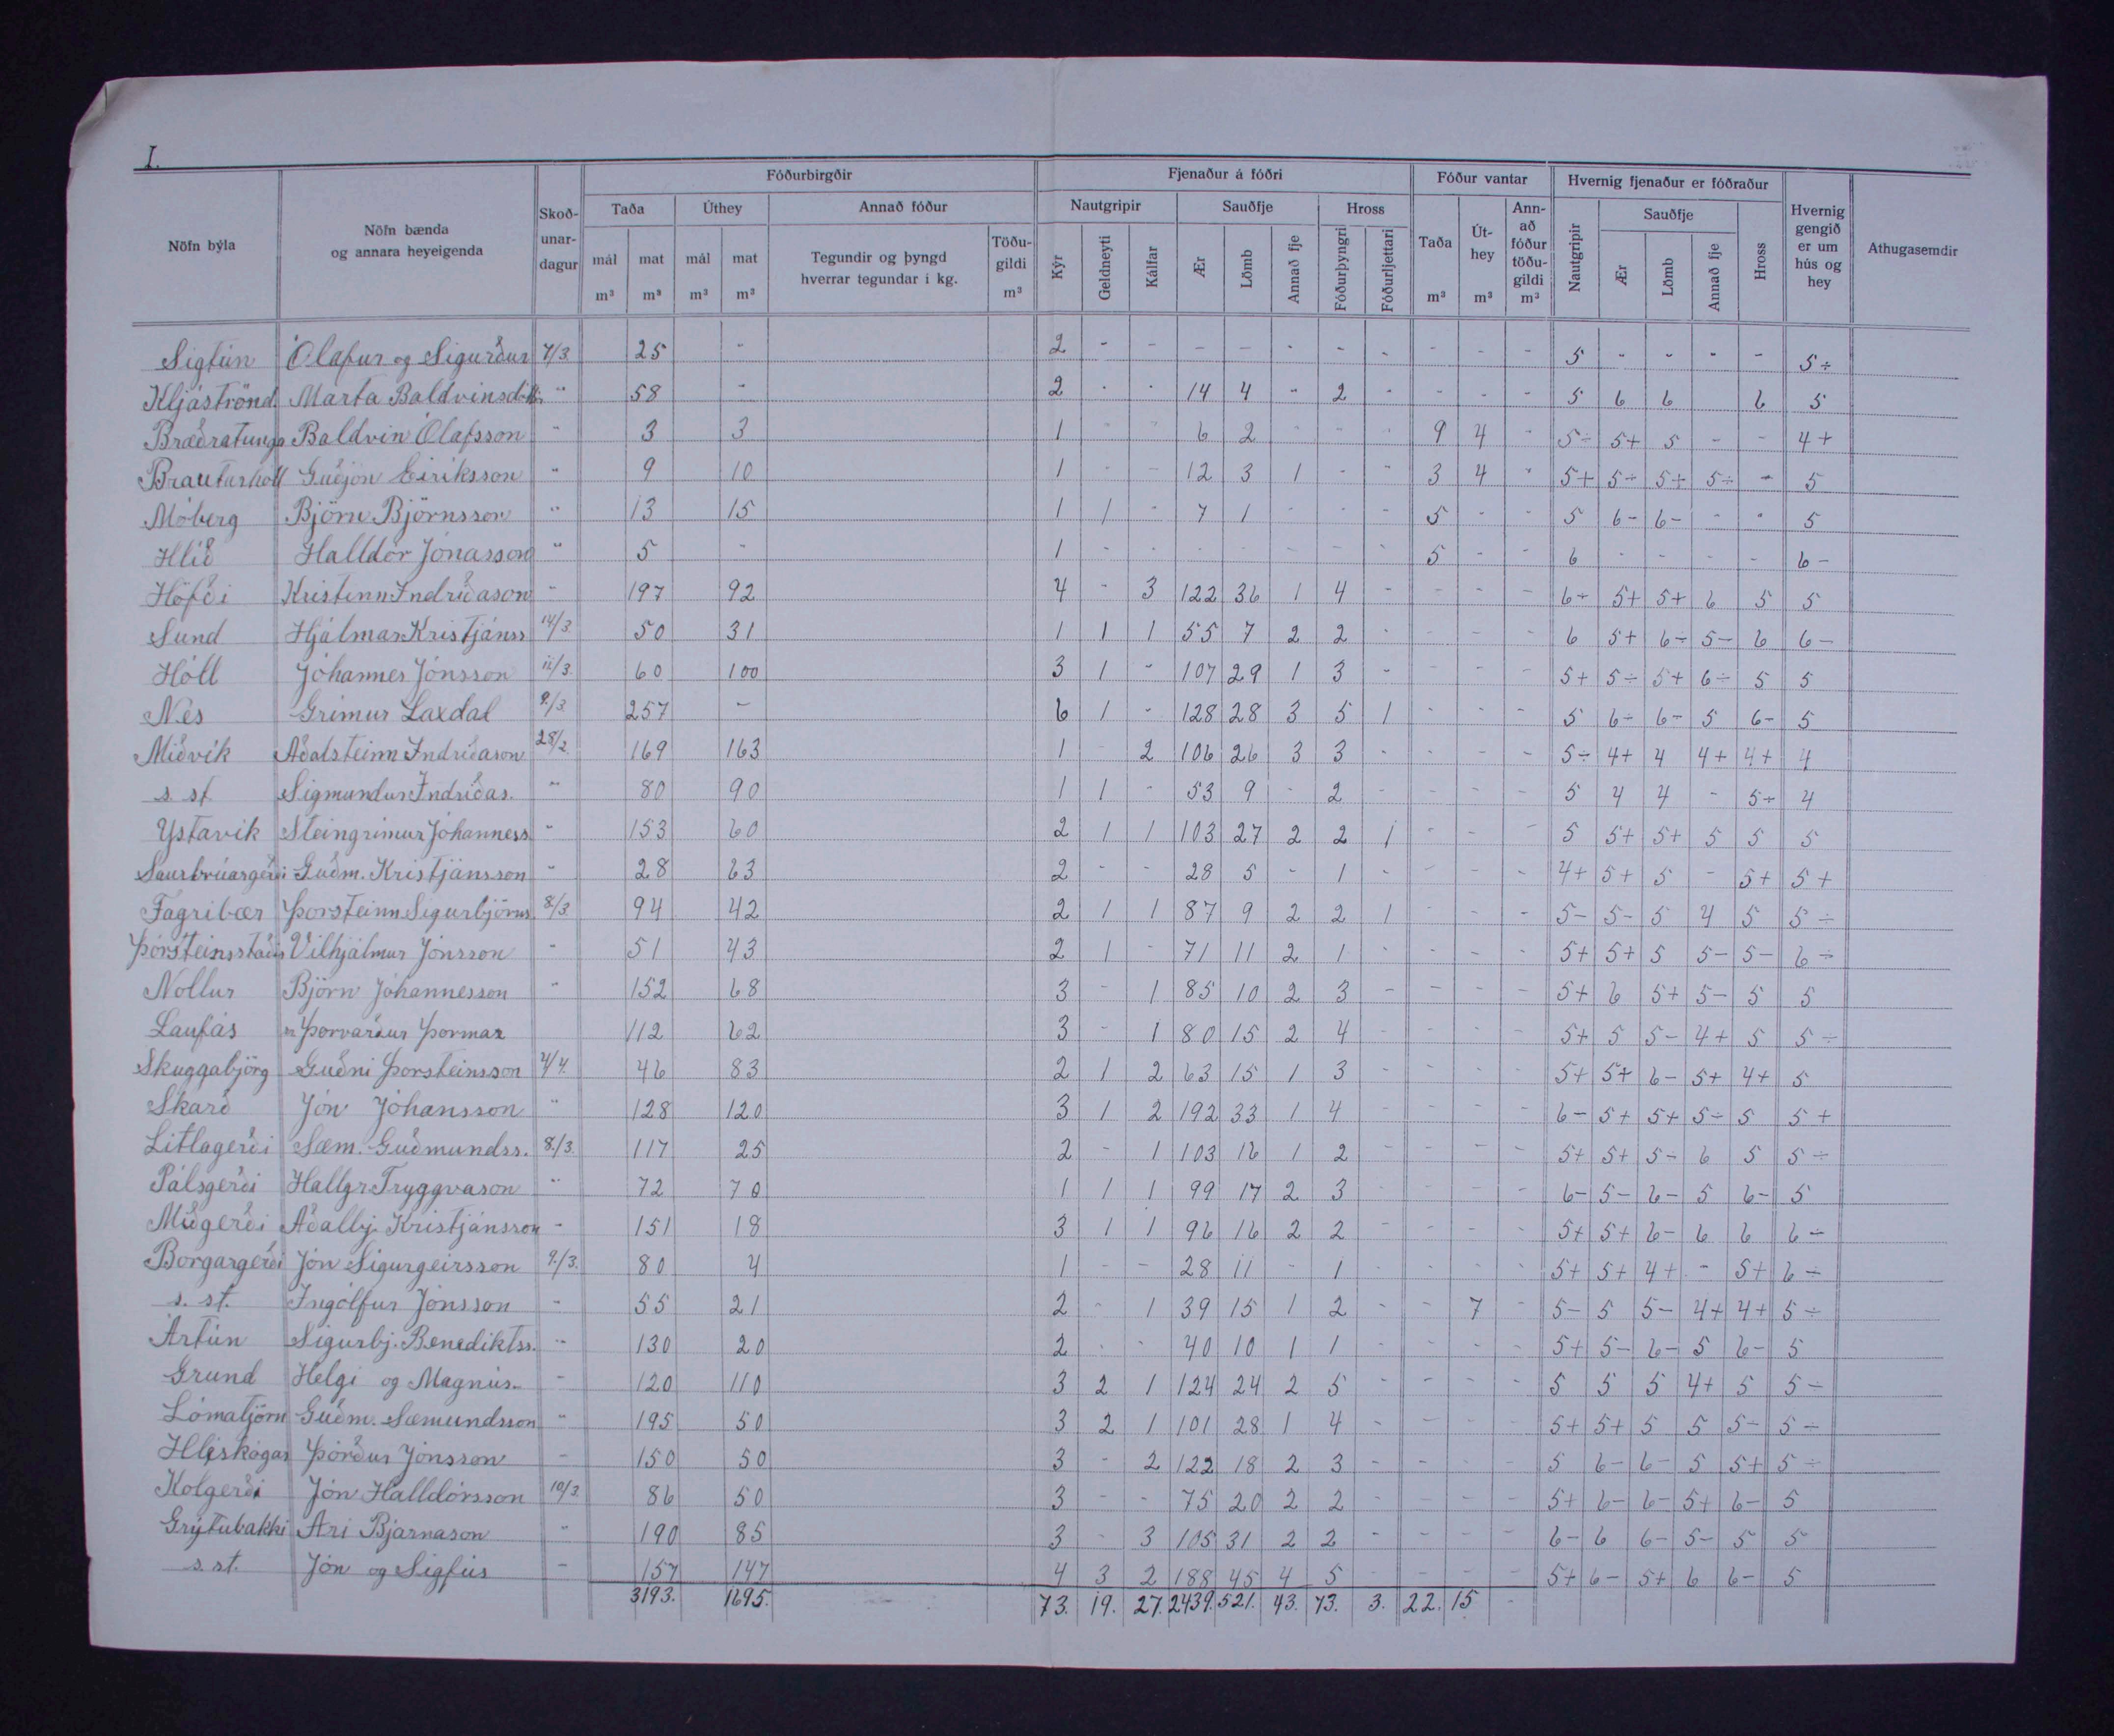 I.
Fóðurbirgðir Fjenaður á fóðri Fóður vantar Hvernig fjenaður er fóðraður
Nöfn býla Nöfn bænda og annara heyeigenda Skoð-unar-dagur Taða Úthey Annað fóður Nautgripir Sauðfje Hross Taða Út-hey Ann-að fóður töðu-gildi m³ Nautgripir Sauðfje Hross Hvernig gengið er um hús og hey Athugasemdir
mál m³ mat m³ mál m³ mat m³ Tegundir og þyngd hverrar tegundar í kg. Töðu-gildi m³ Kýr Geldneyti Kálfar Ær Lömb Annað fje Fóðurþyngri Fóðurljettari m³ m³ Ær Lömb Annað fje
Sigtún Ólafur og Sigurður 7/3 25 - 2 - - - - - - - - - - 5 - - - - 5÷
Kljáströnd Marta Baldvinsdóttir " 58 - 2 - - 14 4 - 2 - - - - 5 6 6 6 5
Bræðratunga Baldvin Ólafsson - 3 3 1 - - 6 2 - - - 9 4 - 5÷ 5+ 5 - - 4+
Brautarhóll Guðjón Eiríksson " 9 10 1 - - 12 3 1 - - 3 4 - 5+ 5÷ 5+ 5÷ - 5
Móberg Björn Björnsson " 13 15 1 1 - 7 1 - - - 5 - - 5 6- 6- - - 5
Hlíð Halldór Jónasson " 5 - 1 - - - - - - - 5 - - 6 - - - - 6-
Höfði Kristinn Indriðason - 197 92 4 - 3 122 36 1 4 - - - - 6÷ 5+ 5+ 6 5 5
Sund Hjálmar Kristjánss 14/3 50 31 1 1 1 55 7 2 2 - - - - 6 5+ 6÷ 5- 6 6-
Hóll Jóhannes Jónsson 11/3 60 100 3 1 - 107 29 1 3 - - - - 5+ 5÷ 5+ 6÷ 5 5
Nes Grímur Laxdal 9/3 257 - 6 1 - 128 28 3 5 1 - - - 5 6÷ 6- 5 6- 5
Miðvík Aðalsteinn Indriðason 28/2 169 163 1 - 2 106 26 3 3 - - - - 5÷ 4+ 4 4+ 4+ 4
s. st. Sigmundur Indriðas. " 80 90 1 1 - 53 9 - 2 - - - - 5 4 4 - 5÷ 4
Ystavík Steingrímur Jóhanness. - 153 60 2 1 1 103 27 2 2 1 - - - 5 5+ 5+ 5 5 5
Saurbrúargerði Guðm. Kristjánsson - 28 63 2 - - 28 5 - 1 - - - - 4+ 5+ 5 - 5+ 5+
Fagribær Þorsteinn Sigurbjörns 8/3 94 42 2 1 1 87 9 2 2 1 - - - 5- 5- 5 4 5 5÷
Þórsteinsstaðir Vilhjálmur Jónsson - 51 43 2 1 - 71 11 2 1 - - - - 5+ 5+ 5 5- 5- 6÷
Nollur Björn Jóhannesson - 152 68 3 - 1 85 10 2 3 - - - - 5+ 6 5+ 5- 5 5
Laufás sr Þorvarður Þormar 112 62 3 - 1 80 15 2 4 - - - - 5+ 5 5- 4+ 5 5÷
Skuggabjörg Guðni Þorsteinsson 4/4. 46 83 2 1 2 63 15 1 3 - - - - 5+ 5+ 6- 5+ 4+ 5
Skarð Jón Jóhansson " 128 120 3 1 2 192 33 1 4 - - - - 6- 5+ 5+ 5÷ 5 5+
Litlagerði Sæm. Guðmundss. 8/3. 117 25 2 - 1 103 16 1 2 - - - - 5+ 5+ 5÷ 6 5 5÷
Pálsgerði Hallgr Tryggvason " 72 70 1 1 1 99 17 2 3 - - - - 6- 5- 6- 5 6- 5
Miðgerði Aðalbj. Kristjánsson - 151 18 3 1 1 96 16 2 2 - - - - 5+ 5+ 6- 6 6 6÷
Borgargerði Jón Sigurgeirsson 9/3. 80 4 1 - - 28 11 - 1 - - - - 5+ 5+ 4+ - 5+ 6÷
s. st. Ingólfur Jónsson - 55 21 2 - 1 39 15 1 2 - - 7 - 5- 5 5- 4+ 4+ 5÷
Ártún Sigurbj. Benediktss. - 130 20 2 - - 40 10 1 1 - - - - 5+ 5- 6- 5 6- 5
Grund Helgi og Magnús. - 120 110 3 2 1 124 24 2 5 - - - - 5 5 5 4+ 5 5-
Lómatjörn Guðm. Sæmundsson " 195 50 3 2 1 101 28 1 4 - - - - 5+ 5+ 5 5 5- 5÷
Hléskógar Þórður Jónsson - 150 50 3 - 2 122 18 2 3 - - - - 5 6- 6- 5 5+ 5÷
Kolgerði Jón Halldórsson 10/3. 86 50 3 - - 75 20 2 2 - - - - 5+ 6- 6- 5+ 6- 5
Grýtubakki Ari Bjarnason " 190 85 3 - 3 105 31 2 2 - - - - 6- 6 6- 5- 5 5
s. st. Jón og Sigfús - 157 147 4 3 2 188 45 4 5 - - - - 5+ 6- 5+ 6 6- 5
3193. 1695. 73. 19. 27. 2439. 521. 43. 73. 3. 22. 15 -